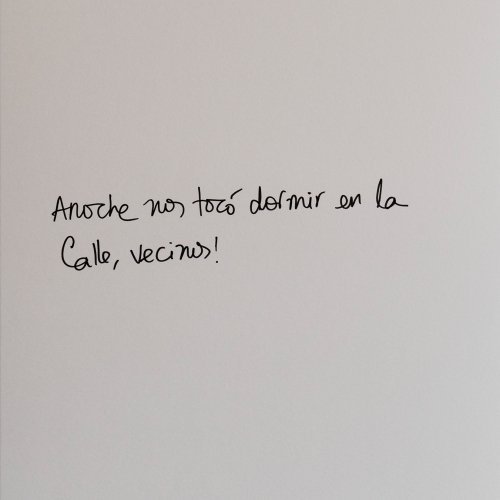 Anoche nos tocó dormir en la
Calle, vecinos!